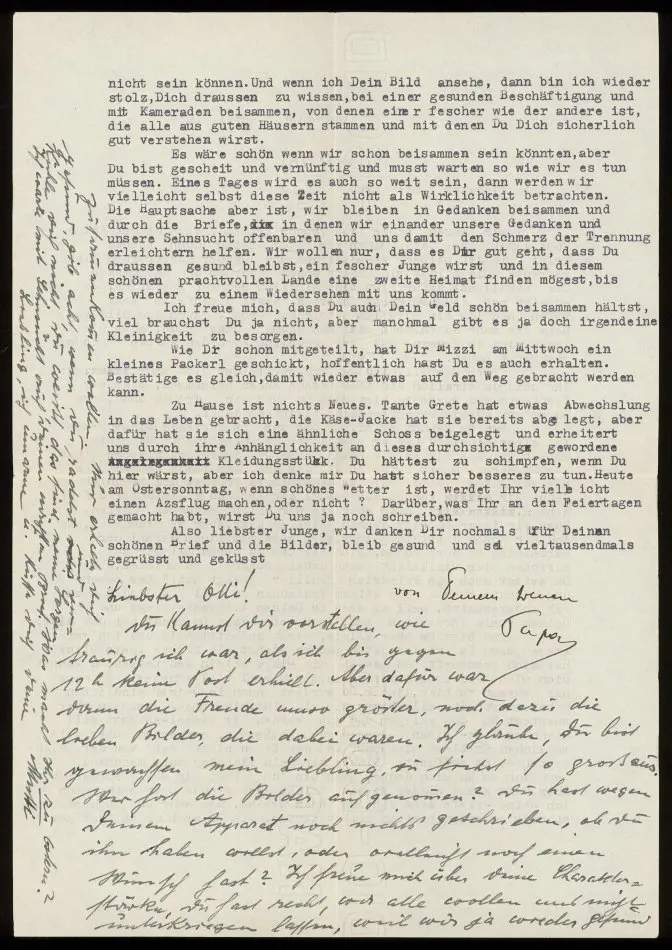 nicht sein können.Und wenn ich Dein Bild ansehe, dann bin ich wieder
stolz,Dich draussen zu wissen,bei einer gesunden Beschäftigung und
mit Kameraden beisammen, von denen einer fescher wie der andere ist,
die alle aus guten Häusern stammen und mit denen Du Dich sicherlich
gut verstehen wirst.
Es wäre schön wenn wir schon beisammen sein könnten,aber
Du bist gescheit und vernünftig und musst warten so wie wir es tun
müssen. Eines Tages wird es auch so weit sein, dann werden wir
vielleicht selbst diese Zeit nicht als Wirklichkeit betrachten.
Die Hauptsache aber ist, wir bleiben in Gedanken beisammen und
durch die Briefe, in denen wir einander unsere Gedanken und
unsere Sehnsucht offenbaren und uns damit den Schmerz der Trennung
erleichtern helfen. Wir wollen nur, dass es Dir gut geht, dass Du
draussen gesund bleibst,ein fescher Junge wirst und in diesem
schönen prachtvollen Lande eine zweite Heimat finden mögest,bis
es wieder zu einem Wiedersehen mit uns kommt.
Ich freue mich, dass Du auch Dein Geld schön beisammen hältst,
viel brauchst Du ja nicht, aber manchmal gibt es ja doch irgendeine
Kleinigkeit zu besorgen.
Wie Dir schon mitgeteilt, hat Dir Mizzi am Mittwoch ein
kleines Packerl geschickt, hoffentlich hast Du es auch erhalten.
Bestätige es gleich,damit wieder etwas auf den Weg gebracht werden
kann.
Zu Hause ist nichts Neues. Tante Grete hat etwas Abwechslung
in das Leben gebracht, die Käse-Jacke hat sie bereits abge legt, aber
dafür hat sie sich eine ähnliche Schoss beigelegt und erheitert
uns durch ihre Anhänglichkeit an dieses durchsichtige gewordene
Kleidungsstück. Du hättest zu schimpfen, wenn Du
hier wärst, aber ich denke mir Du hast sicher besseres zu tun.Heute
am Ostersonntag, wenn schönes Wetter ist, werdet Ihr viell eicht
einen Azsflug machen,oder nicht ? Darüber,was Ihr an den Feiertagen
gemacht habt, wirst Du uns ja noch schreiben.
Also liebster Junge, wir danken Dir nochmals für Deinen
schönen Brief und die Bilder, bleib gesund und sei vieltausendmals
gegrüsst und geküsst
von Deinem treuen
Papa
Liebster Otti!
Du kannst Dir vorstellen, wie
traurig ich war, als ich bis gegen
12 h keine Post erhielt. Aber dafür war
dann die Freude umso größer, noch dazu die
lieben Bilder, die dabei waren. Ich glaube, Du bist
gewachsen mein Liebling, Du siehst so gross aus.
Wer hat die Bilder aufgenommen? Du hast wegen
Deinem Apparat noch nichts geschrieben, ob Du
ihn haben willst, oder vielleicht noch einen
Wunsch hast? Ich freue mich über Deine Charakter-
stärke, Du hast recht, wir alle wollen uns nicht
unterkriegen lassen, weil wir ja wieder gesund
zusammenkommen wollen. Nur erhalte Dich
gesund, gib acht, wenn Du